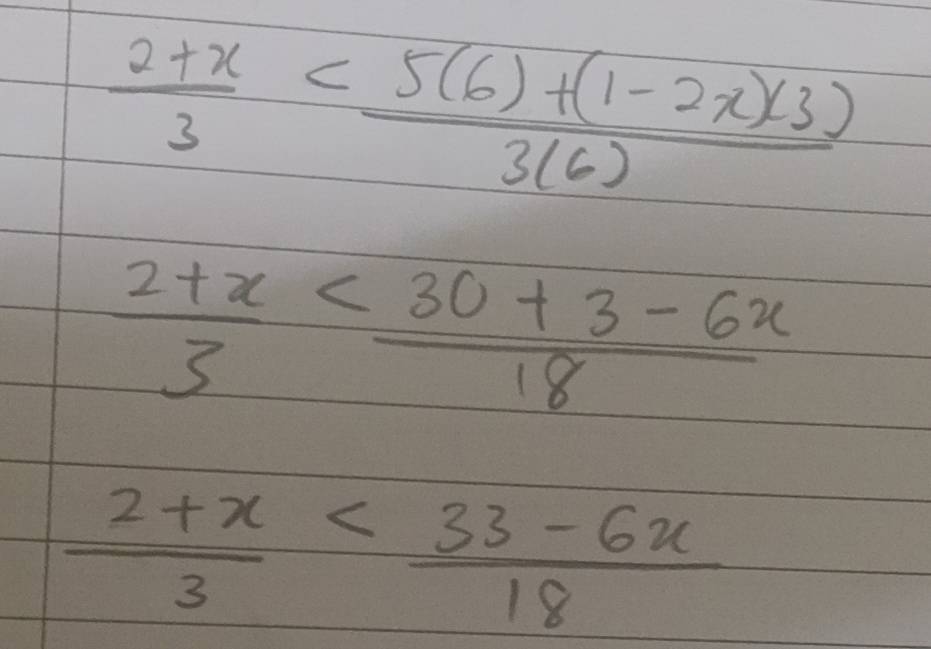 (2+x)/3 < (5(6)+(1-2x)(3))/(3(6))
(2+x)/3 < (30+3-6x)/18
(2+x)/3 < (33-6x)/18